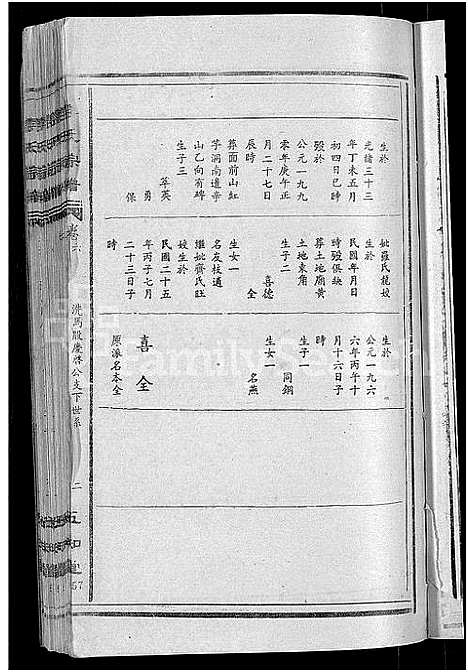 生於
光緒三十三
年丁未五月
初四日巳時
歿於
公元一九九
零年庚午正
月二十七日
辰時
葬面前山紅
字洞南邊辛
山乙向有碑
生子三
萃英
勇
保
妣羅氏龍姣
生於
民國年月日
時歿俱缺
葬土地腐黃
土地東角
生子二
喜德
全
生女一
名友枝適
繼妣齊氏旺
姣生於
民國二十五
年丙子七月
二十三日子
時
生於
公元一九六
六年丙午十
月十六日子
時
生子一
同鋼
生女一
名燕
喜全
原派名本全
卷六
洗馬殷慶祥公支下世系
二
57